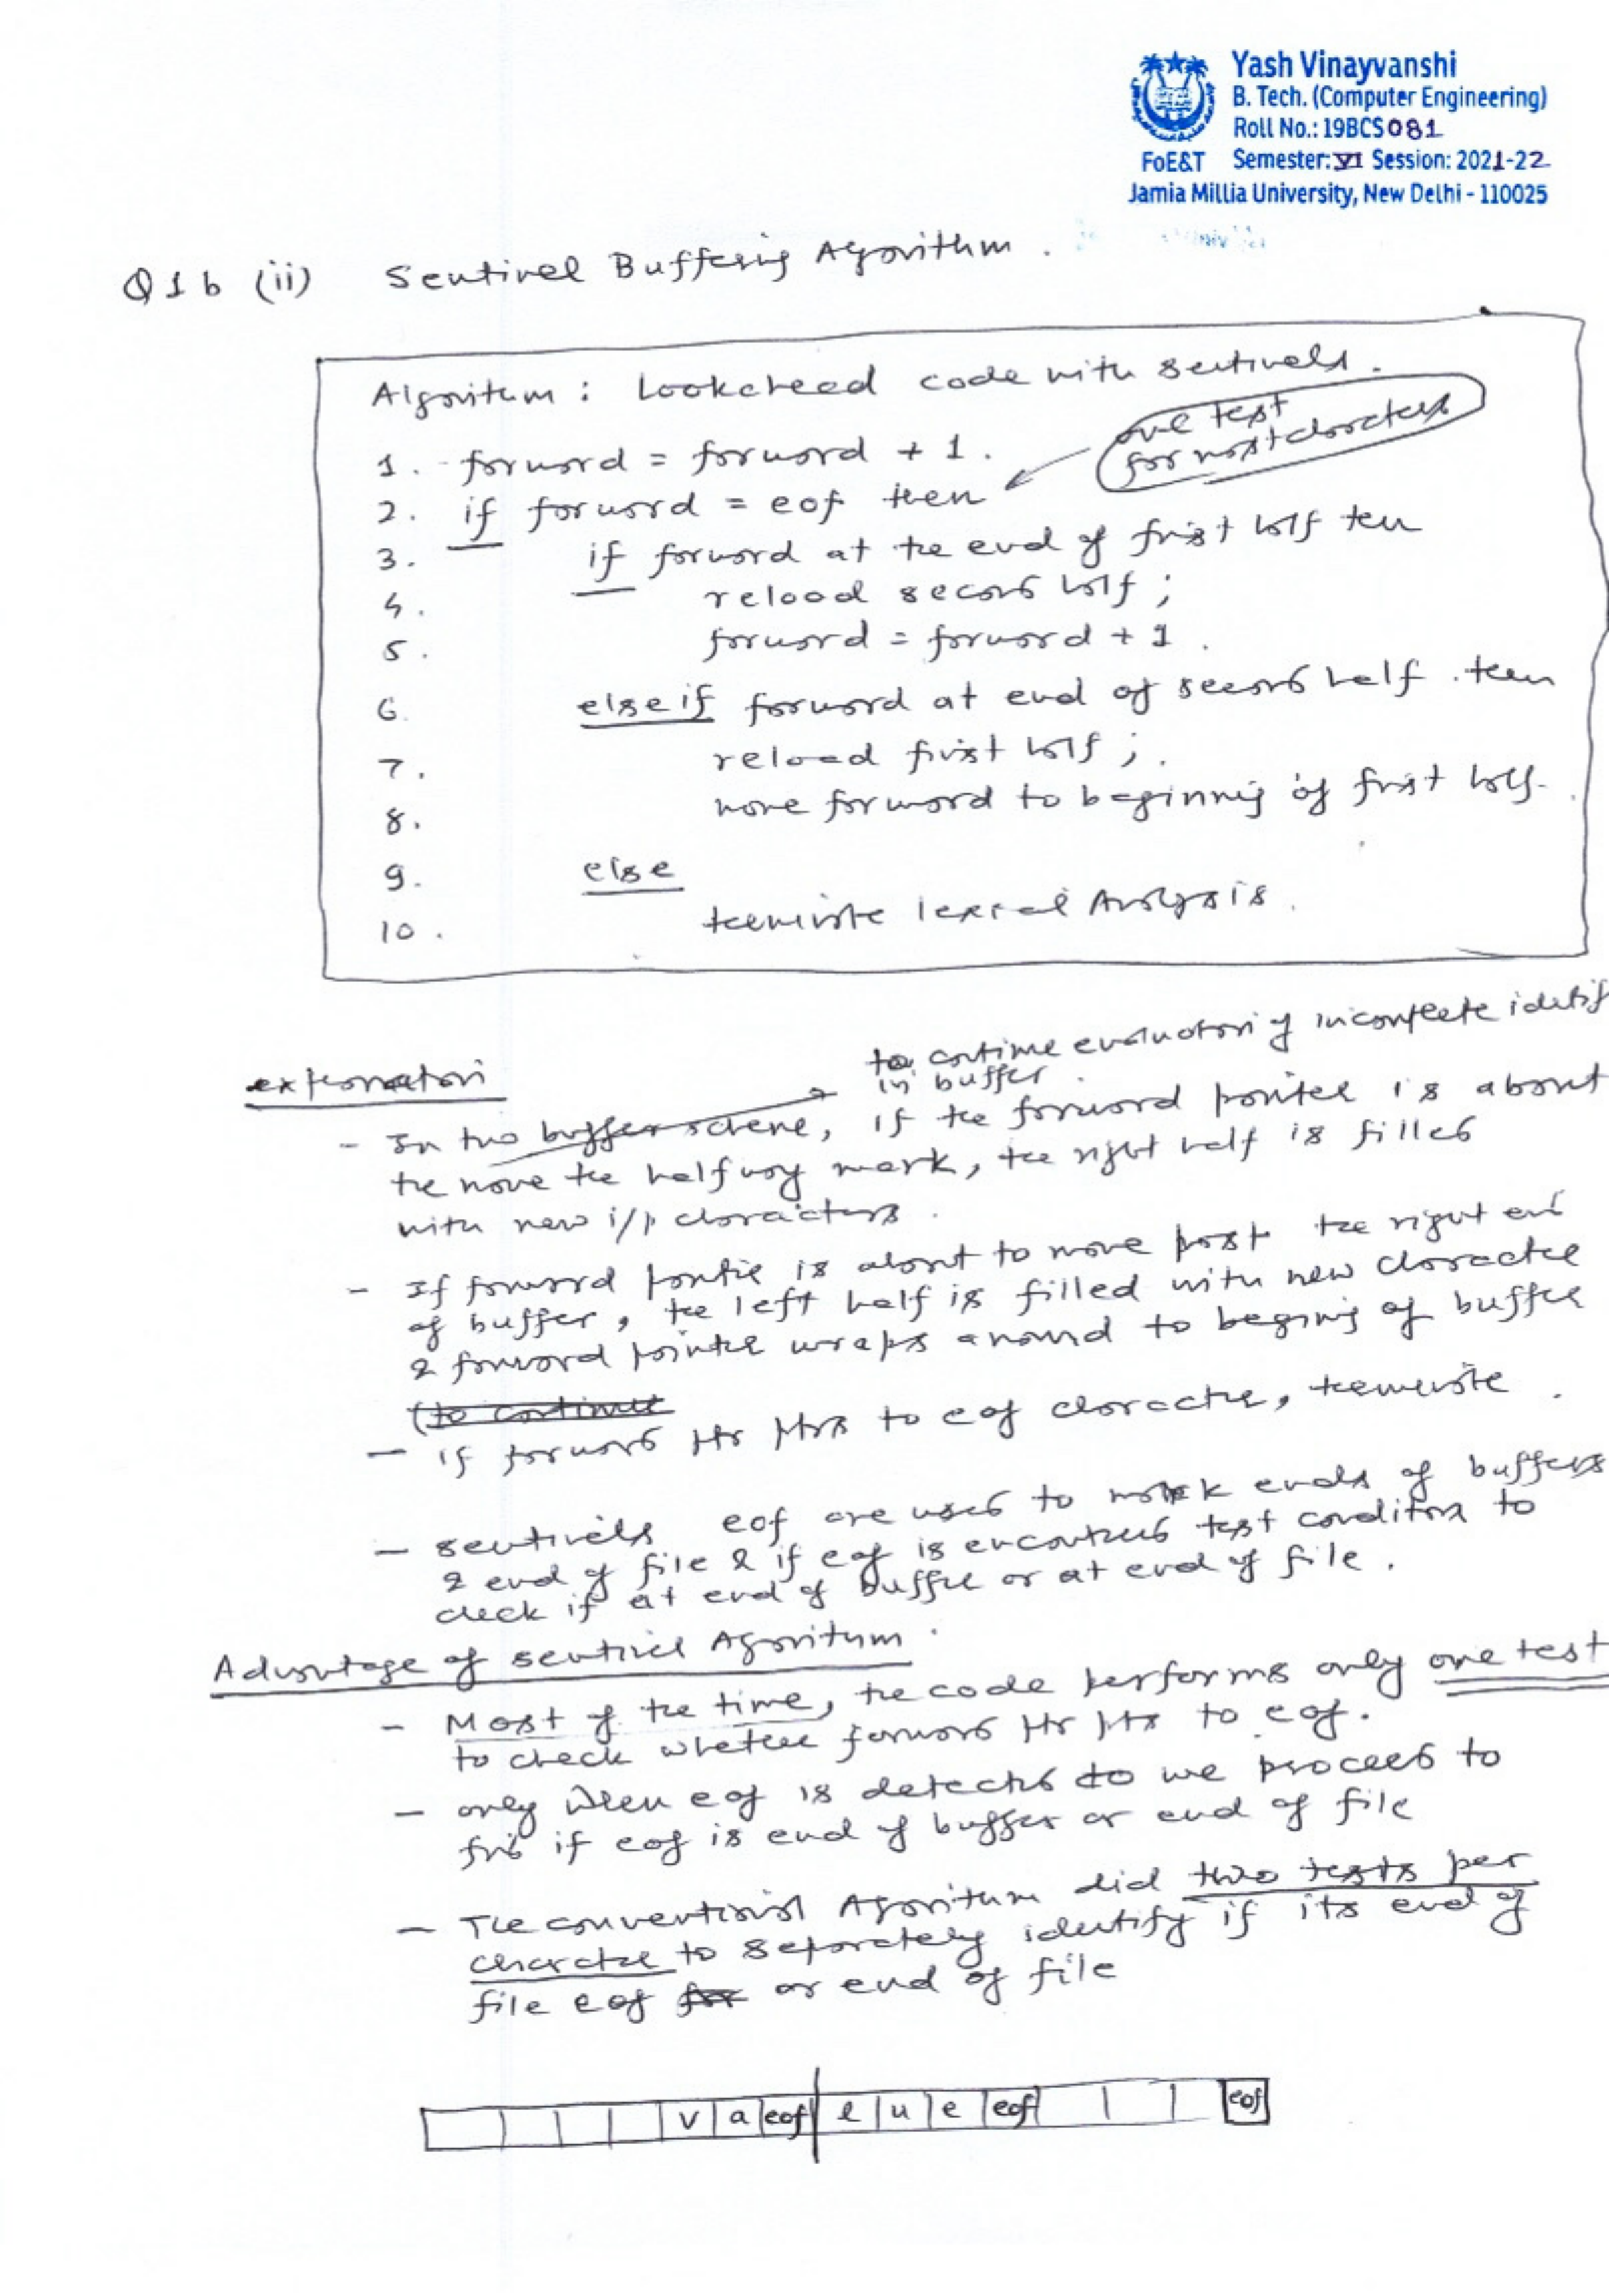 Yash Vinayvanshi
B. Tech. (Computer Engineering)
Roll No.: 19BCS081
FoE&T Semester: VI Session: 2021-22
Jamia Millia University, New Delhi - 110025
Q1b (ii) Sentinel Buffering Algorithm.
Algorithm: Lookahead code with sentinels.
one test
for most characters
1. forward = forward + 1.
2. if forward = eof then
3. if forward at the end of first half then
4. reload second half;
5. forward = forward + 1.
6. else if forward at end of second half then
7. reload first half;
8. move forward to beginning of first half.
9. else
10. terminate lexical Analysis.
to continue evaluation of incomplete identif
in buffer
explanation
- In two buffer scheme, if the forward pointer is about
the move the halfway mark, the right half is filled
with new i/p characters.
- If forward pointer is about to move past the right end
of buffer, the left half is filled with new character
& forward pointer wraps around to begining of buffer
(to continue
- if forward ptr ptrs to eof character, terminate.
- sentinels eof are used to mark ends of buffers
& end of file & if eof is encountered test condition to
check if at end of buffer or at end of file.
Advantage of sentinel Algorithm.
- Most of the time, the code performs only one test
to check whether forward ptr pts to eof.
- only when eof is detected to we proceed to
find if eof is end of buffer or end of file
- The conventional Algorithm did two tests per
character to separately identify if its end of
file eof or end of file
v a eof l u e eof eof